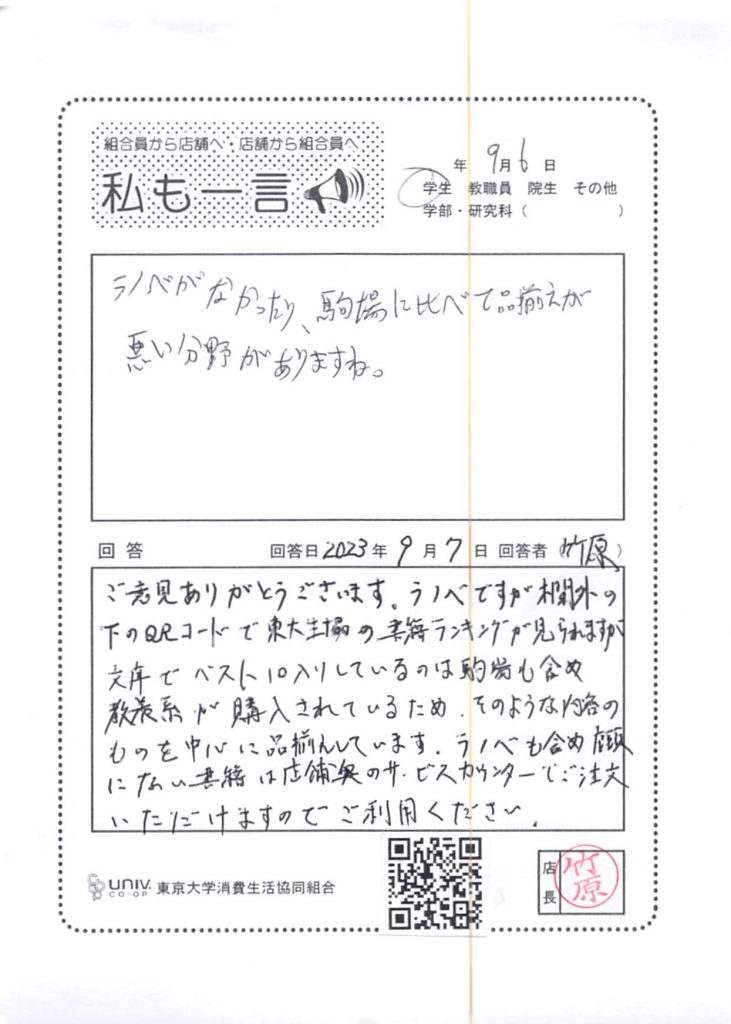 組合員から店舗へ・店舗から組合員へ
私も一言
年 9月6日
学生 教職員 院生 その他
学部・研究科( )
ラノベがなかったり、駒場に比べて品揃えが
悪い分野がありますね。
回答 回答日 2023年 9月7日 回答者(竹原)
ご意見ありがとうございます。ラノベですが欄外の
下のQRコードで東大生協の書籍ランキングが見られますが
文庫でベスト10入りしているのは駒場も含め
教養系が購入されているため、そのような内容の
ものを中心に品揃えしています。ラノベも含め店頭
にない書籍は店舗奥のサービスカウンターでご注文
いただけますのでご利用ください。
UNIV. CO-OP 東京大学消費生活協同組合
店長 竹原